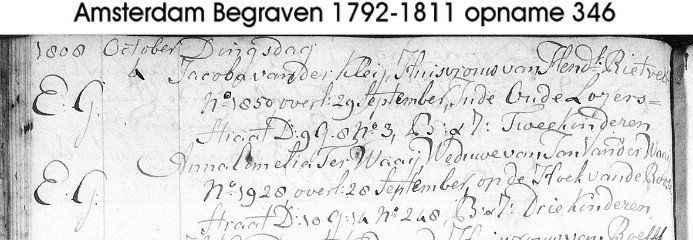 Amsterdam Begraven 1792-1811 opname 346
1808 October Dingsdag
4 Jacoba van der Kleij, Huisvrouw van Hendk Rietvel
E: G: No 1850 overl: 29 September, Inde Oude Loyers=
straat D: 9 G: 8 No 3, B: d 7: Twee kinderen
Anna Amelia Ter Waaij Weduwe van Jan van der
E: G: No 1928 overl: 28 September, op de Hoek van de
straat D: 10 G: 14 No 248, B: d 7: Drie kinderen